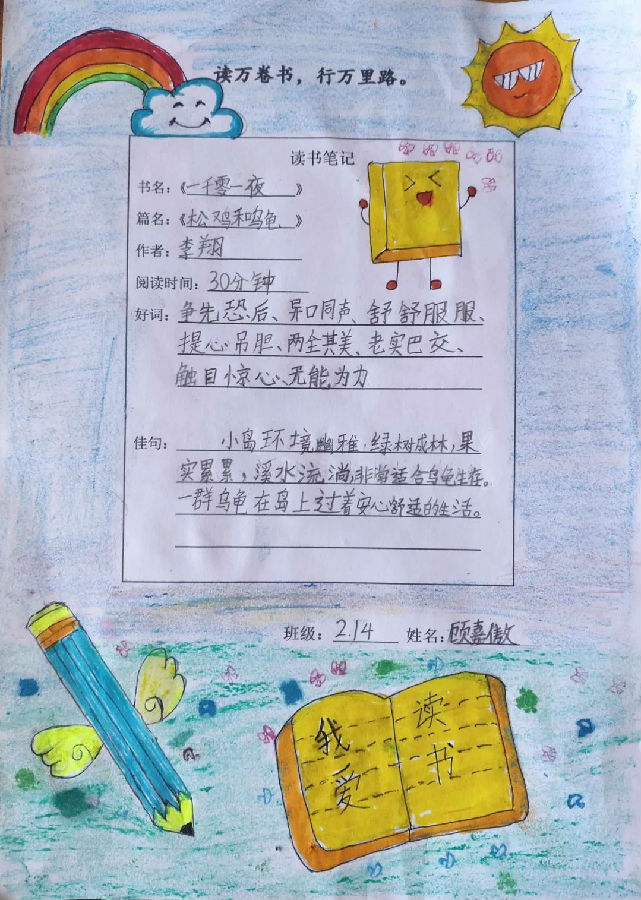 读万卷书，行万里路。
读书笔记
书名：《一千零一夜》
篇名：《松鸡和乌龟》
作者：李翔
阅读时间：30分钟
好词：争先恐后、异口同声、舒舒服服、
提心吊胆、两全其美、老实巴交、
触目惊心、无能为力
佳句：小岛环境幽雅，绿树成林，果
实累累，溪水流淌，非常适合乌龟生存。
一群乌龟在岛上过着安心舒适的生活。
班级：2.14 姓名：顾嘉傲
我爱
读书